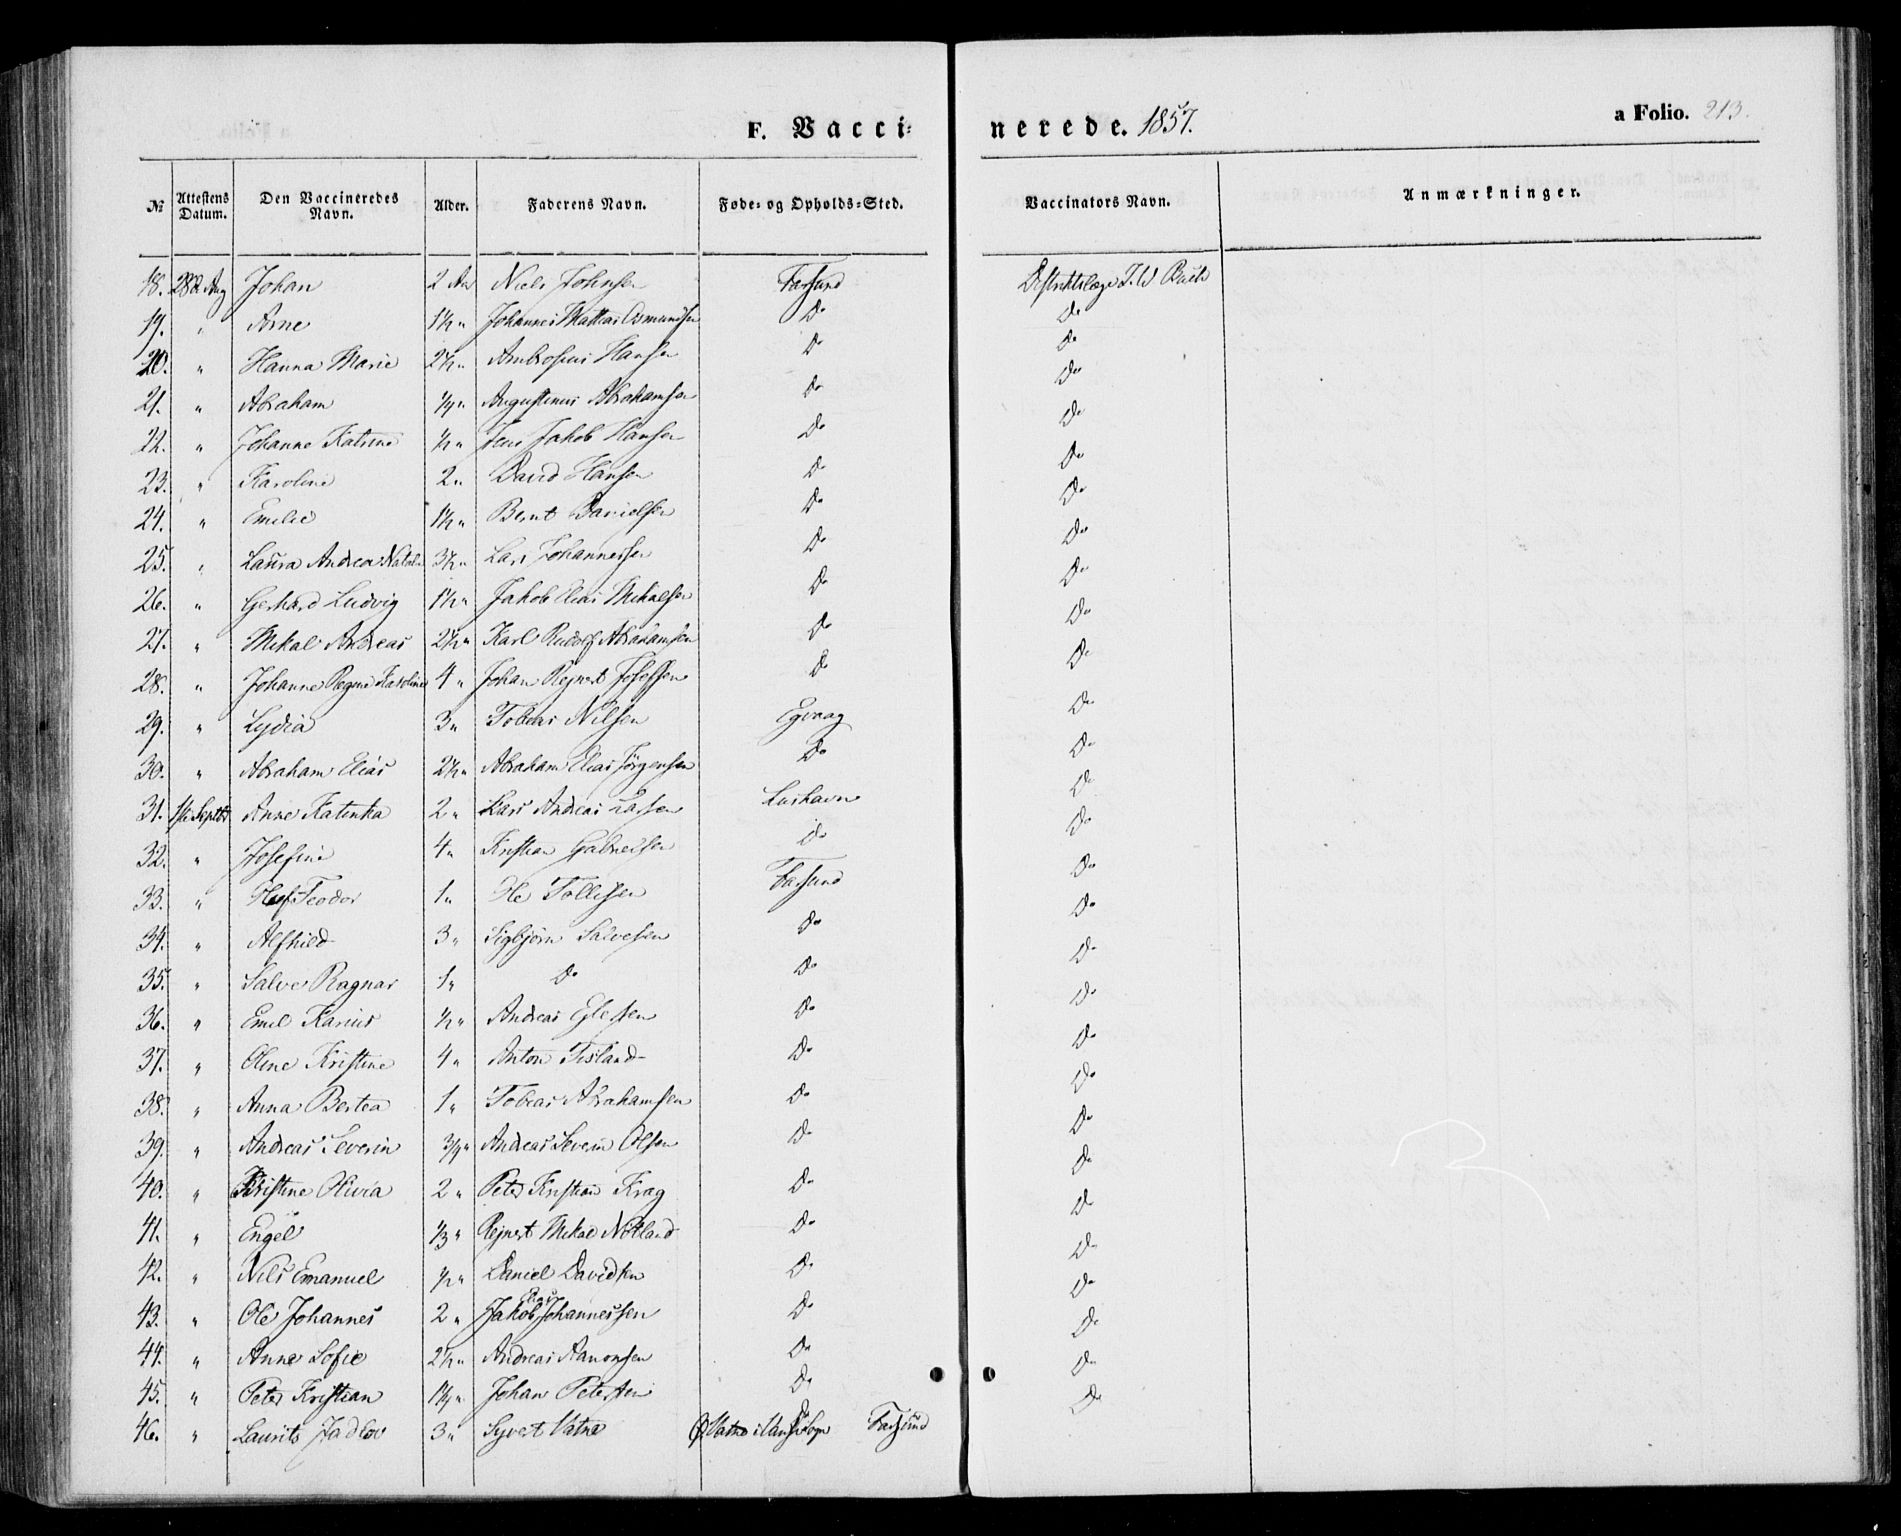 F. Vacci-
nerede. 1857.
a Folio. 213.
№ Attestens Datum. Den Vaccineredes Navn. Alder. Faderens Navn. Føde- og Opholds-Sted. Vaccinators Navn. Anmærkninger.
18. 28de Aug Johan 2 Aar Niels Johnsen Farsund Distriktslæge J. W Buch
19. " Arne 1½ " Johannes Mattias Osmundsen Do Do
20. " Hanna Marie 2½ " Ambrosius Hansen Do Do
21. " Abraham ¼ " Augustinus Abrahamsen Do Do
22. " Johanne Katrine ½ " Jens Jakob Hansen Do Do
23. " Karoline 2 " David Hansen Do Do
24. " Emilie 1½ " Bernt Danielsen Do Do
25. " Laura Andrea Natalie 3½ " Lars Johannessen Do Do
26. " Gerhard Ludvig 1½ " Jakob Elias Mikalsen Do Do
27. " Mikal Andreas 2½ " Karl Rudolf Abrahamsen Do Do
28. " Johanne Regine Karoline 4 " Johan Rejnert Josefsen Do Do
29. " Lydia 3 " Tobias Nilsen Egvaag Do
30. " Abraham Elias 2½ " Abraham Elias Jörgensen Do Do
31. 1ste Septbr Anne Katinka 2 " Lars Andreas Larsen Lushavn Do
32. " Josefine 4 " Kristian Gabrielsen Do Do
33. " Teodor 1 " Ole Tollefsen Farsund Do
34. " Alfhild 3 " Sigbjörn Salvesen Do Do
35. " Salve Ragnar 1 " Do Do Do
36. " Emil Karius ½ " Andreas Do Do
37. " Oline Kristine 4 " Anton Do Do
38. " Anna Bertea 1 " Tobias Abrahamsen Do Do
39. " Andreas Severin 3/4 " Andreas Severin Olsen Do Do
40. " Kristine Olivia 2 " Peter Kristian Krag Do Do
41. " Engel ⅓ " Rejnert Mikal Nötland Do Do
42. " Nils Emanuel ½ " Daniel Davidsen Do Do
43. " Ole Johannes 2 " Jakob Elias Johannessen Do Do
44. " Anne Sofie 2½ " Andreas Aanonsen Do Do
45. " Peter Kristian 1¼ " Johan Petersen Do Do
46. " Laurits 3 " Syvert Vatne Vatne i Vanse Sogn Farsund Do